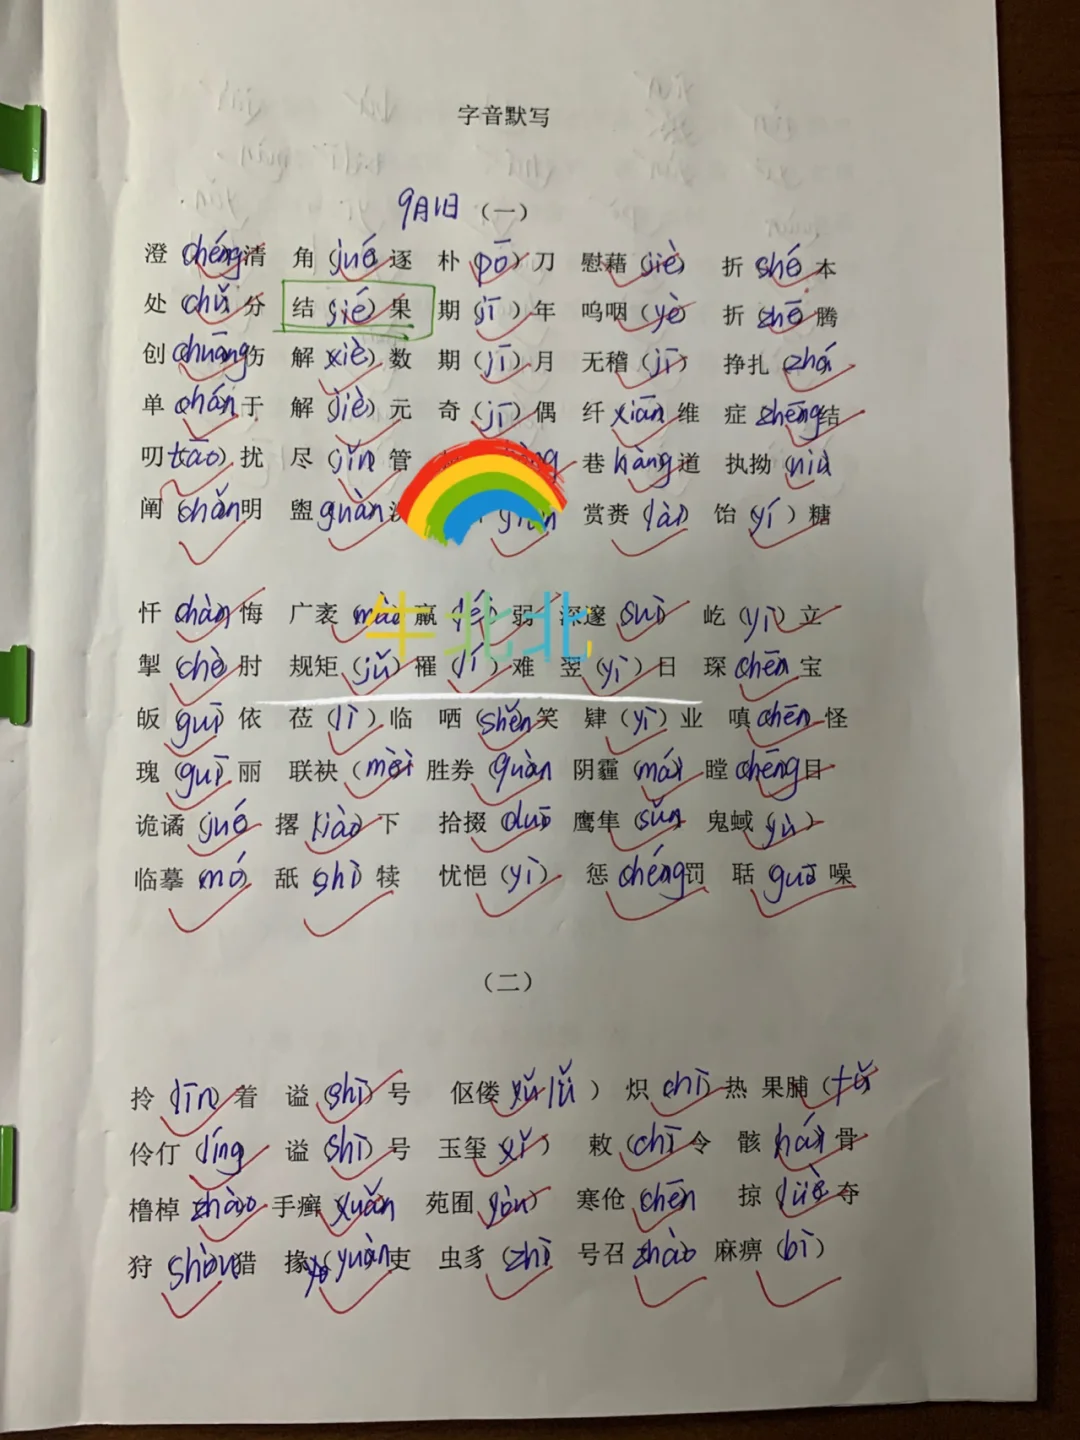 字音默写
9月1日 (一)
澄(chéng)清 角(jué)逐 朴(pō)刀 慰藉(jiè) 折(shé)本
处(chǔ)分 结(jié)果 期(jī)年 呜咽(yè) 折(zhē)腾
创(chuāng)伤 解(xiè)数 期(jī)月 无稽(jī) 挣扎(zhá)
单(chán)于 解(jiè)元 奇(jī)偶 纤(xiān)维 症(zhēng)结
叨(tāo)扰 尽(jǐn)管 巷(hàng)道 执拗(niù)
阐(chǎn)明 盥(guàn) 赏赉(lài) 饴(yí)糖
忏(chàn)悔 广袤(mào) 羸(léi)弱 深邃(suì) 屹(yì)立
掣(chè)肘 规矩(jǔ) 罹(lí)难 翌(yì)日 琛(chēn)宝
皈(guī)依 莅(lì)临 哂(shěn)笑 肄(yì)业 嗔(chēn)怪
瑰(guī)丽 联袂(mèi) 胜券(quàn) 阴霾(mái) 瞠(chēng)目
诡谲(jué) 撂(liào)下 拾掇(duō) 鹰隼(sǔn) 鬼蜮(yù)
临摹(mó) 舐(shì)犊 忧悒(yì) 惩(chéng)罚 聒(guō)噪
(二)
拎(līn)着 谥(shì)号 伛偻(yǔ lǚ) 炽(chì)热 果脯(fǔ)
伶仃(líng) 谥(shì)号 玉玺(xǐ) 敕(chì)令 骸(hái)骨
櫓棹(zhào) 手癣(xuǎn) 苑囿(yòu) 寒伧(chēn) 掠(lüè)夺
狩(shòu)猎 掾(yuàn)吏 虫豸(zhì) 号召(zhào) 麻痹(bì)
牛北北